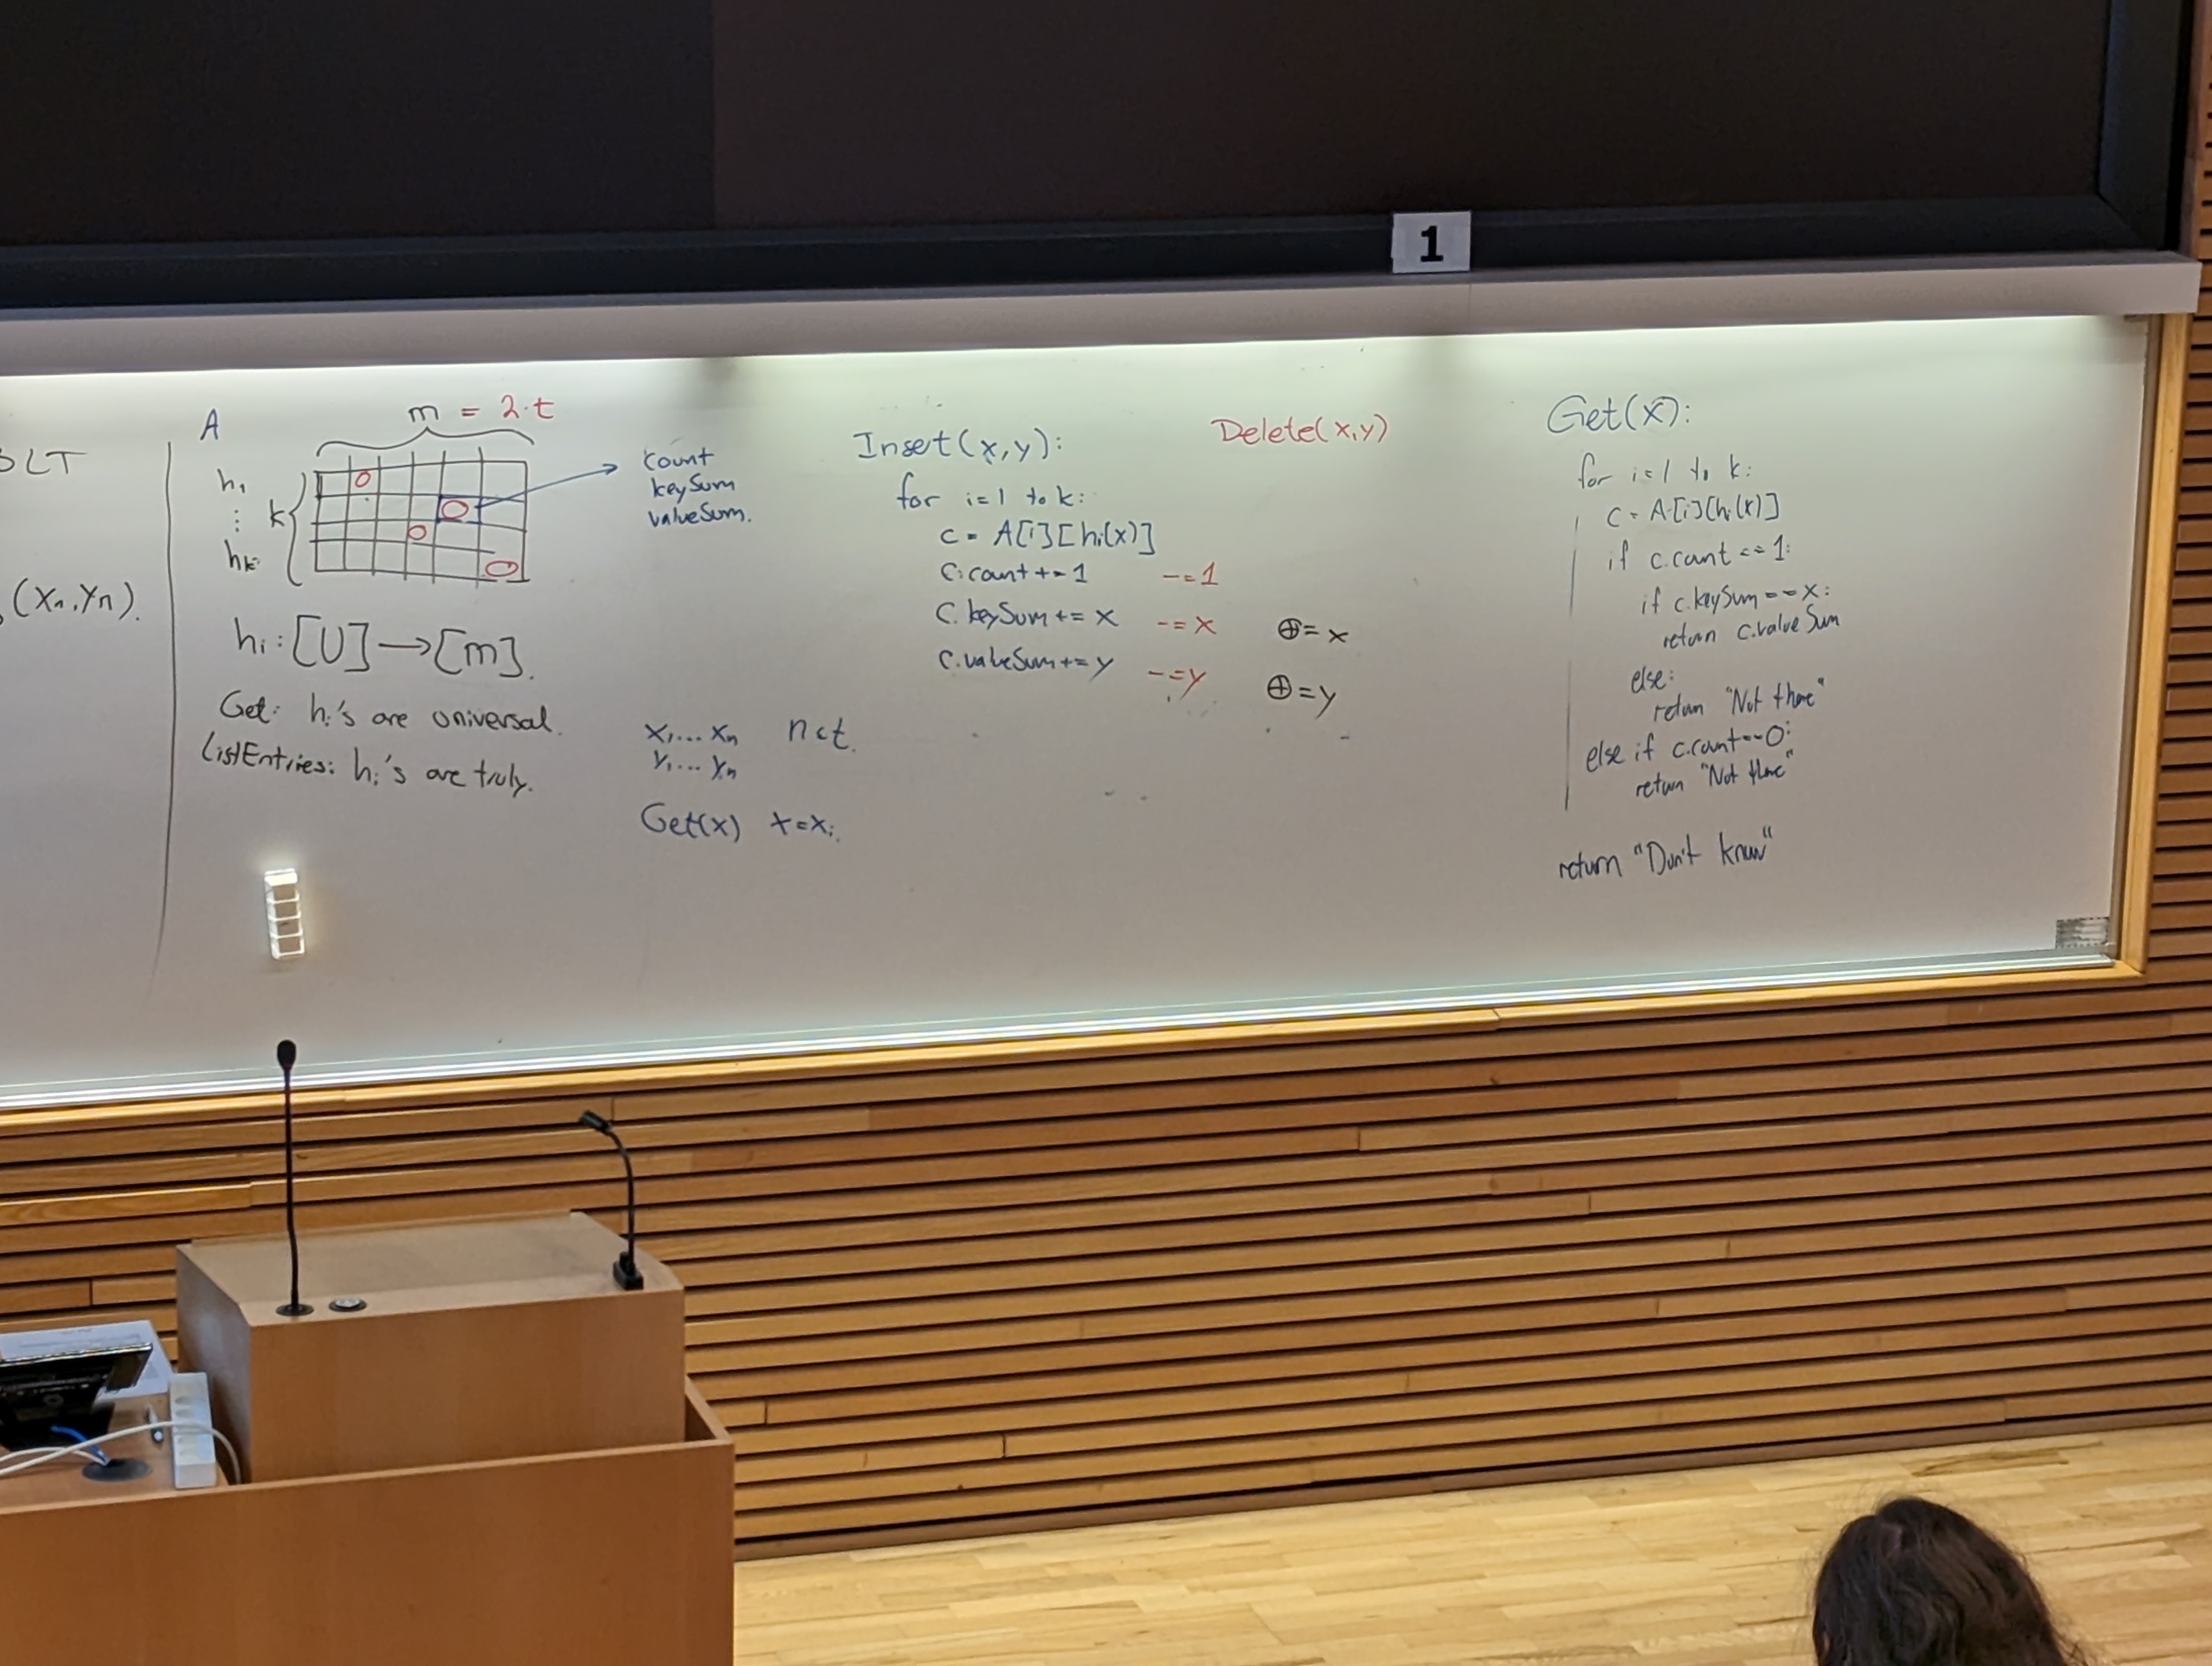 1
BLT
(xn,yn).
A
m = 2·t
h1
⋮
hk
k
count
keySum
valueSum.
hi: [U] → [m].
Get: hi's are universal.
listEntries: hi's are truly.
x1,... xn n<t.
y1,... yn
Get(x) x=xi.
Inset(x,y):
for i=1 to k:
c = A[i][hi(x)]
c.count += 1
c.keySum += x
c.valueSum += y
Delete(x,y)
-=1
-=x
-=y
⊕=x
⊕=y
Get(x):
for i=1 to k:
c = A[i][hi(x)]
if c.count == 1:
if c.keySum == x:
return c.valueSum
else:
return "Not there"
else if c.count == 0:
return "Not there"
return "Don't know"